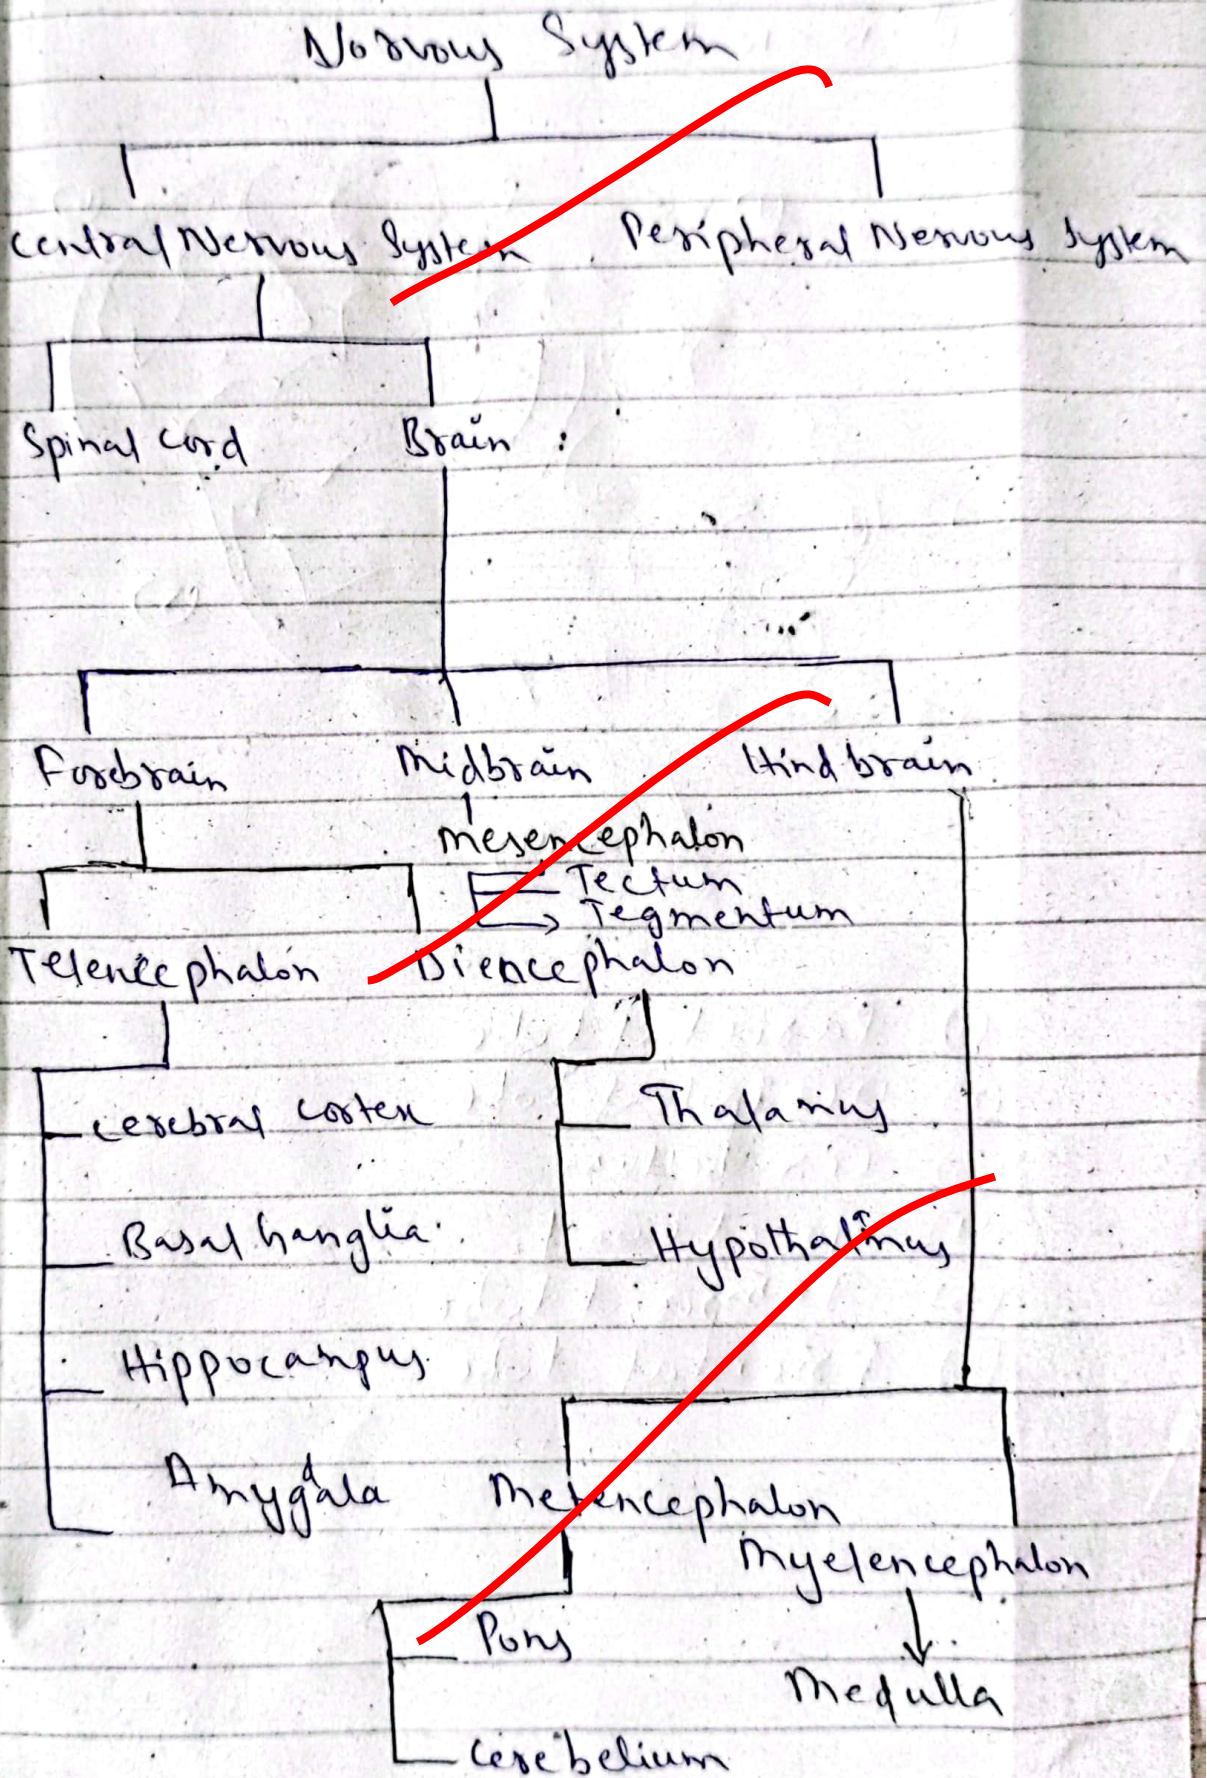 Nervous System
Central Nervous System Peripheral Nervous System
Spinal cord Brain :
Forebrain Midbrain Hind brain
Mesencephalon
Tectum
Tegmentum
Telencephalon Diencephalon
Cerebral cortex Thalamus
Basal Ganglia
Hypothalamus
Hippocampus
Amygdala Metencephalon
Myelencephalon
Pons
Medulla
Cerebelium